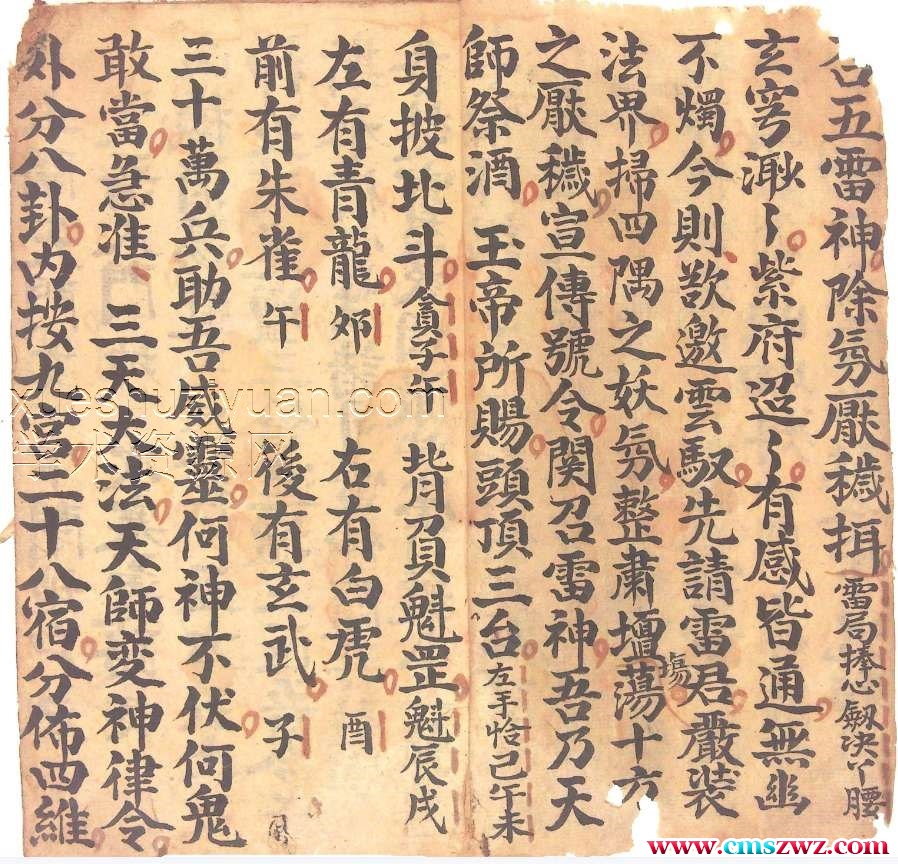 召五雷神除氛厭穢揖雷局捧心劍決丫腰
玄穹㴾〻紫府迢〻有感皆通無幽
不燭今則欲邀雲馭先請雷君嚴裝
法界掃四隅之妖氛整肅壇塲蕩十方
之厭穢宣傳號令関召雷神吾乃天
師祭酒 玉帝所賜頭頂三台左手恰己午未
身披北斗貪子午 背負魁罡魁辰戌
左有青龍夘 右有白虎酉
前有朱雀午 後有玄武子
三十萬兵助吾威靈何神不伏何鬼
敢當急准 三天大法天師变神律令
外分八卦内按九宮二十八宿分佈四維
xueshuziyuan.com
学术资源网
www.cmszwz.com